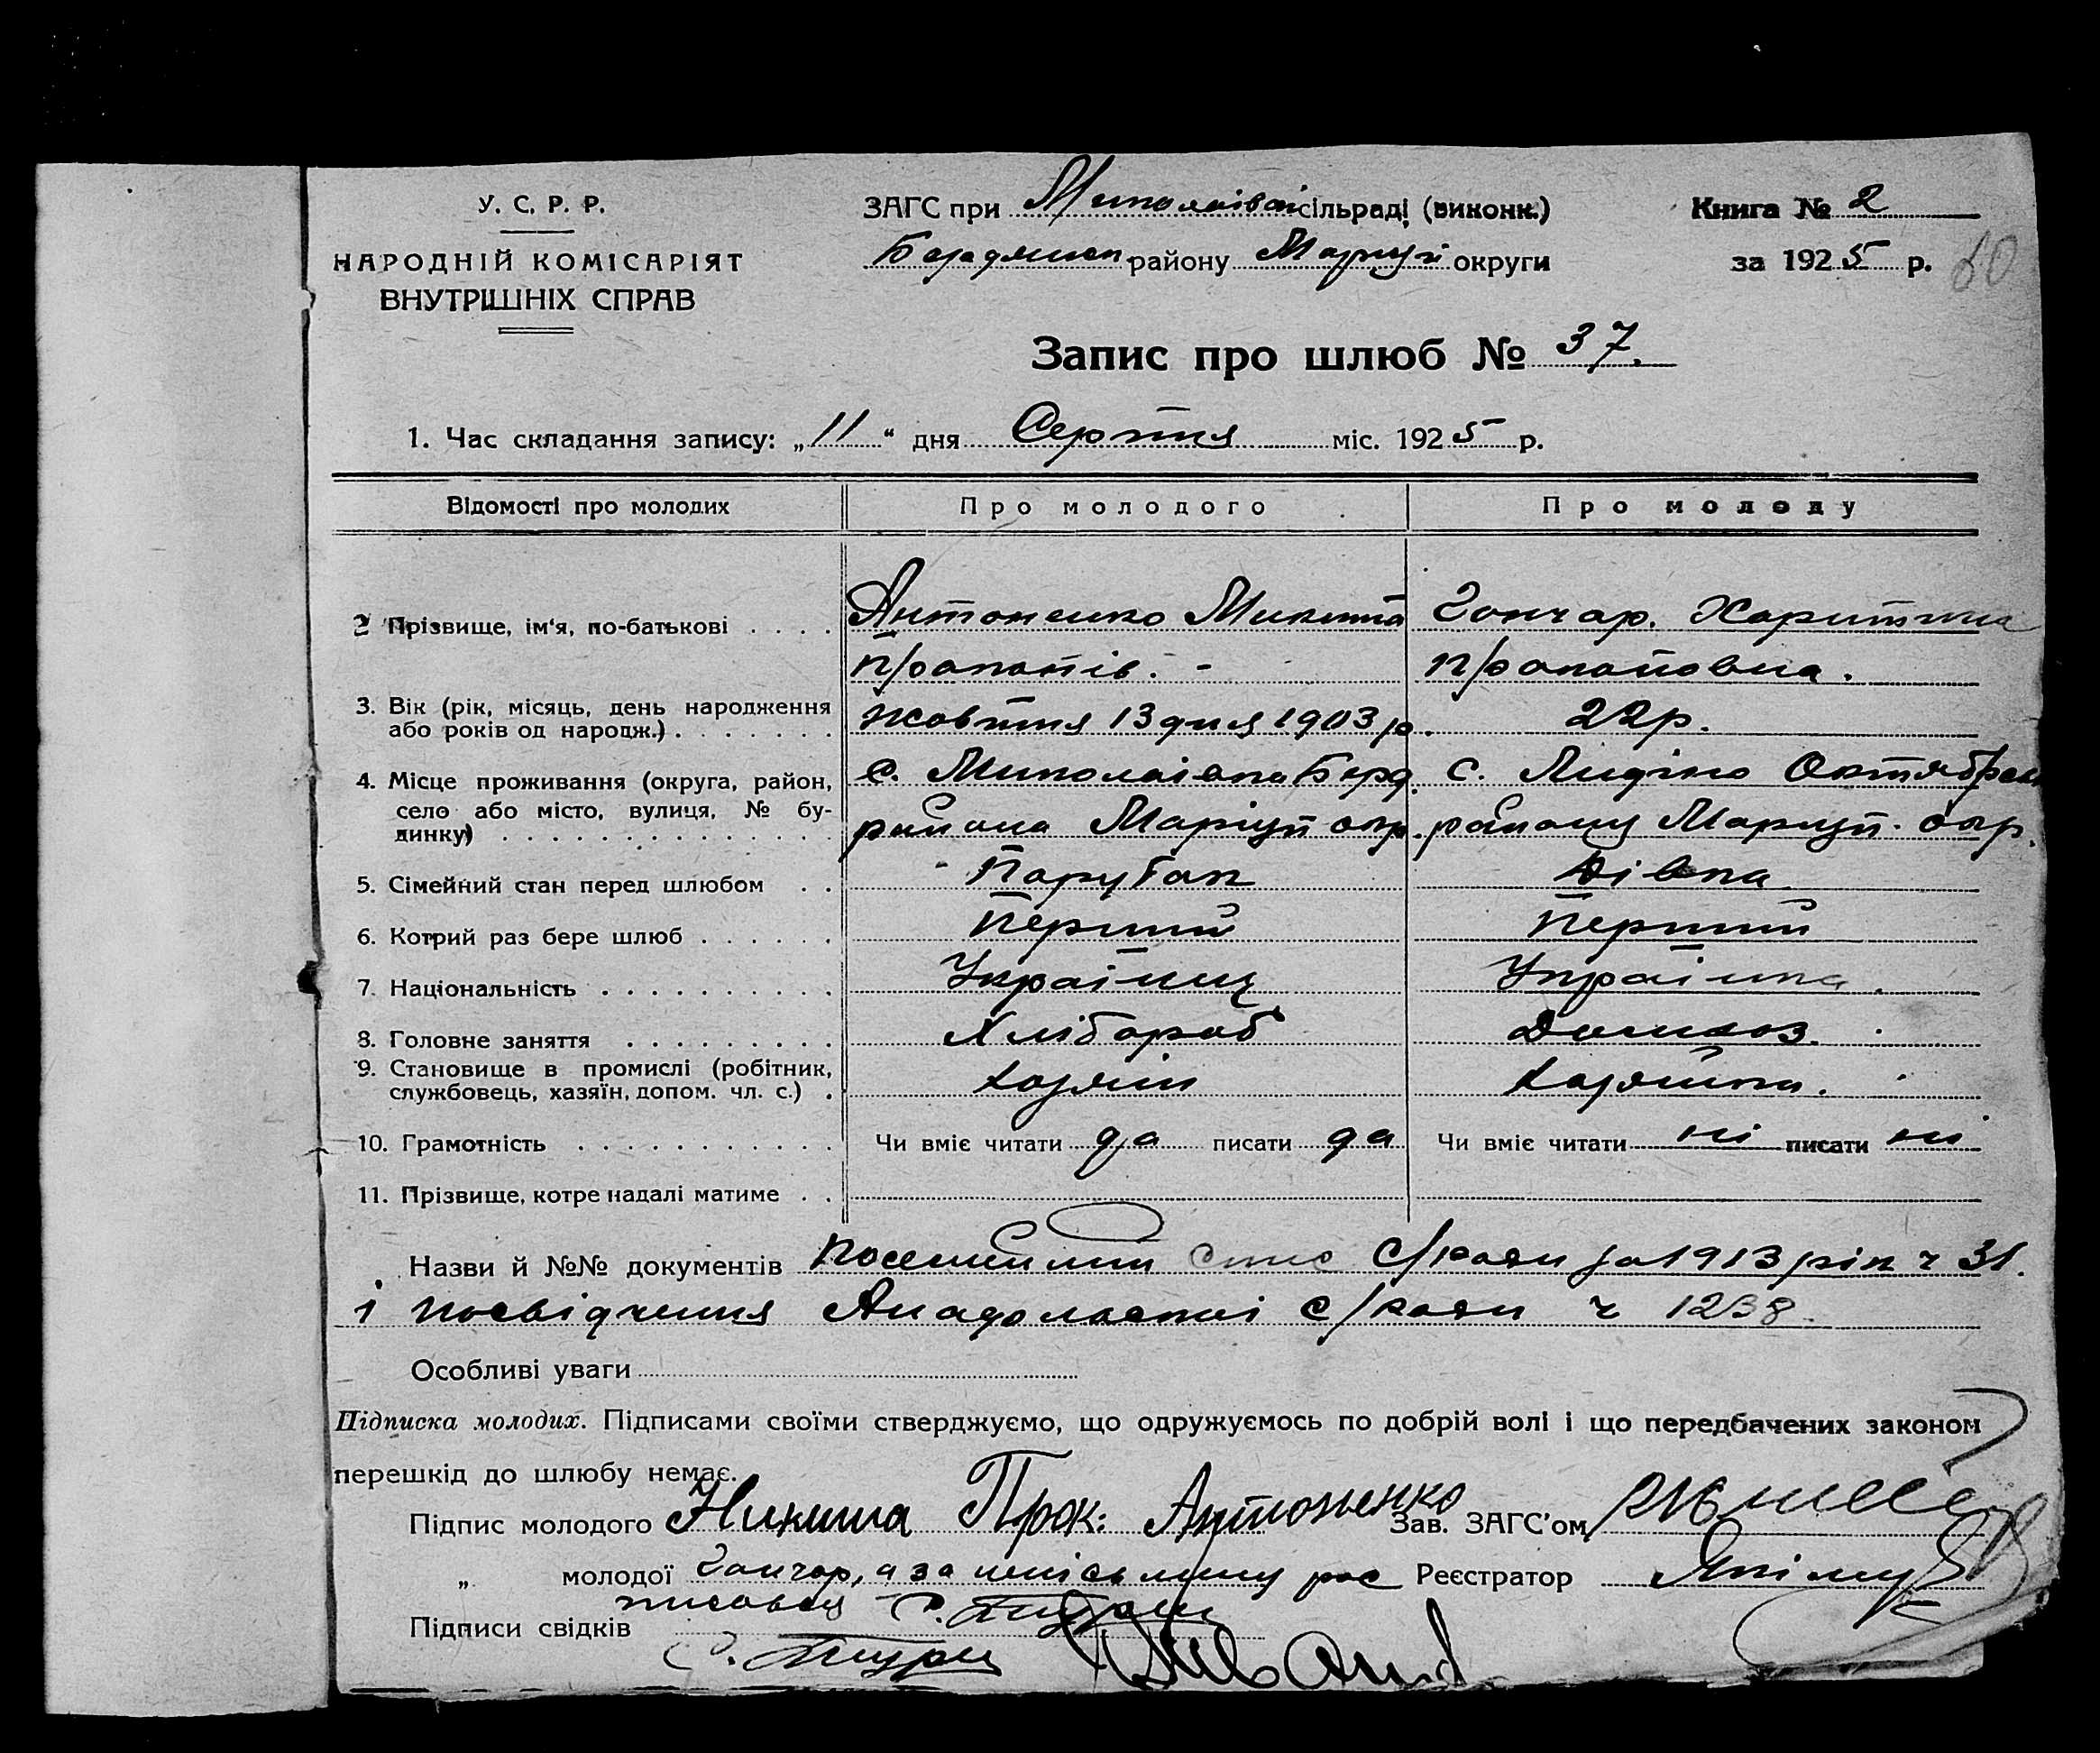 У. С. Р. Р.
НАРОДНІЙ КОМІСАРІЯТ
ВНУТРІШНІХ СПРАВ
ЗАГС при Миколаївск сільраді (виконк.)
Бердянськ. району Маріуп округи
Книга № 2
за 1925 р.
60
Запис про шлюб № 37.
1. Час складання запису: „11“ дня Серпня міс. 1925 р.
Відомості про молодих
Про молодого
Про молоду
2 Прізвище, ім'я, по-батькові . . . .
Антоненко Микита
Прокопів. -
Гончар. Харитина
Прокоповна.
3. Вік (рік, місяць, день народження
або років од народж.) . . . . . . .
жовтня 13 дня 1903 р.
22р.
4. Місце проживання (округа, район,
село або місто, вулиця, № бу-
динку) . . . . . . . . . . . . . .
с. Миколаївка Берд.
района Маріуп окр.
с. Лидіно Октябрск
району Маріуп. окр.
5. Сімейний стан перед шлюбом . .
Парубок
Дівка
6. Котрий раз бере шлюб . . . . . .
Перший
Перший
7. Національність . . . . . . . . . .
Україниц
Українка.
8. Головне заняття . . . . . . . . .
Хлібороб
Домхоз.
9. Становище в промислі (робітник,
службовець, хазяїн, допом. чл. с.) .
Хазяін
Хазяйка.
10. Грамотність . . . . . . . . . . .
Чи вміє читати да писати да
Чи вміє читати ні писати ні
11. Прізвище, котре надалі матиме . .
Назви й №№ документів Посемейний спис С/ради за 1913 рік ч 31.
і посвідчення Анадольскої с/ради ч 1238.
Особливі уваги
Підписка молодих. Підписами своїми стверджуємо, що одружуємось по добрій волі і що передбачених законом
перешкід до шлюбу немає.
Підпис молодого Никита Прок: Антоненко
Зав. ЗАГС'ом
„ молодої Гончар, а за неписьмену рос
писався С.
Реєстратор
Підписи свідків
С.